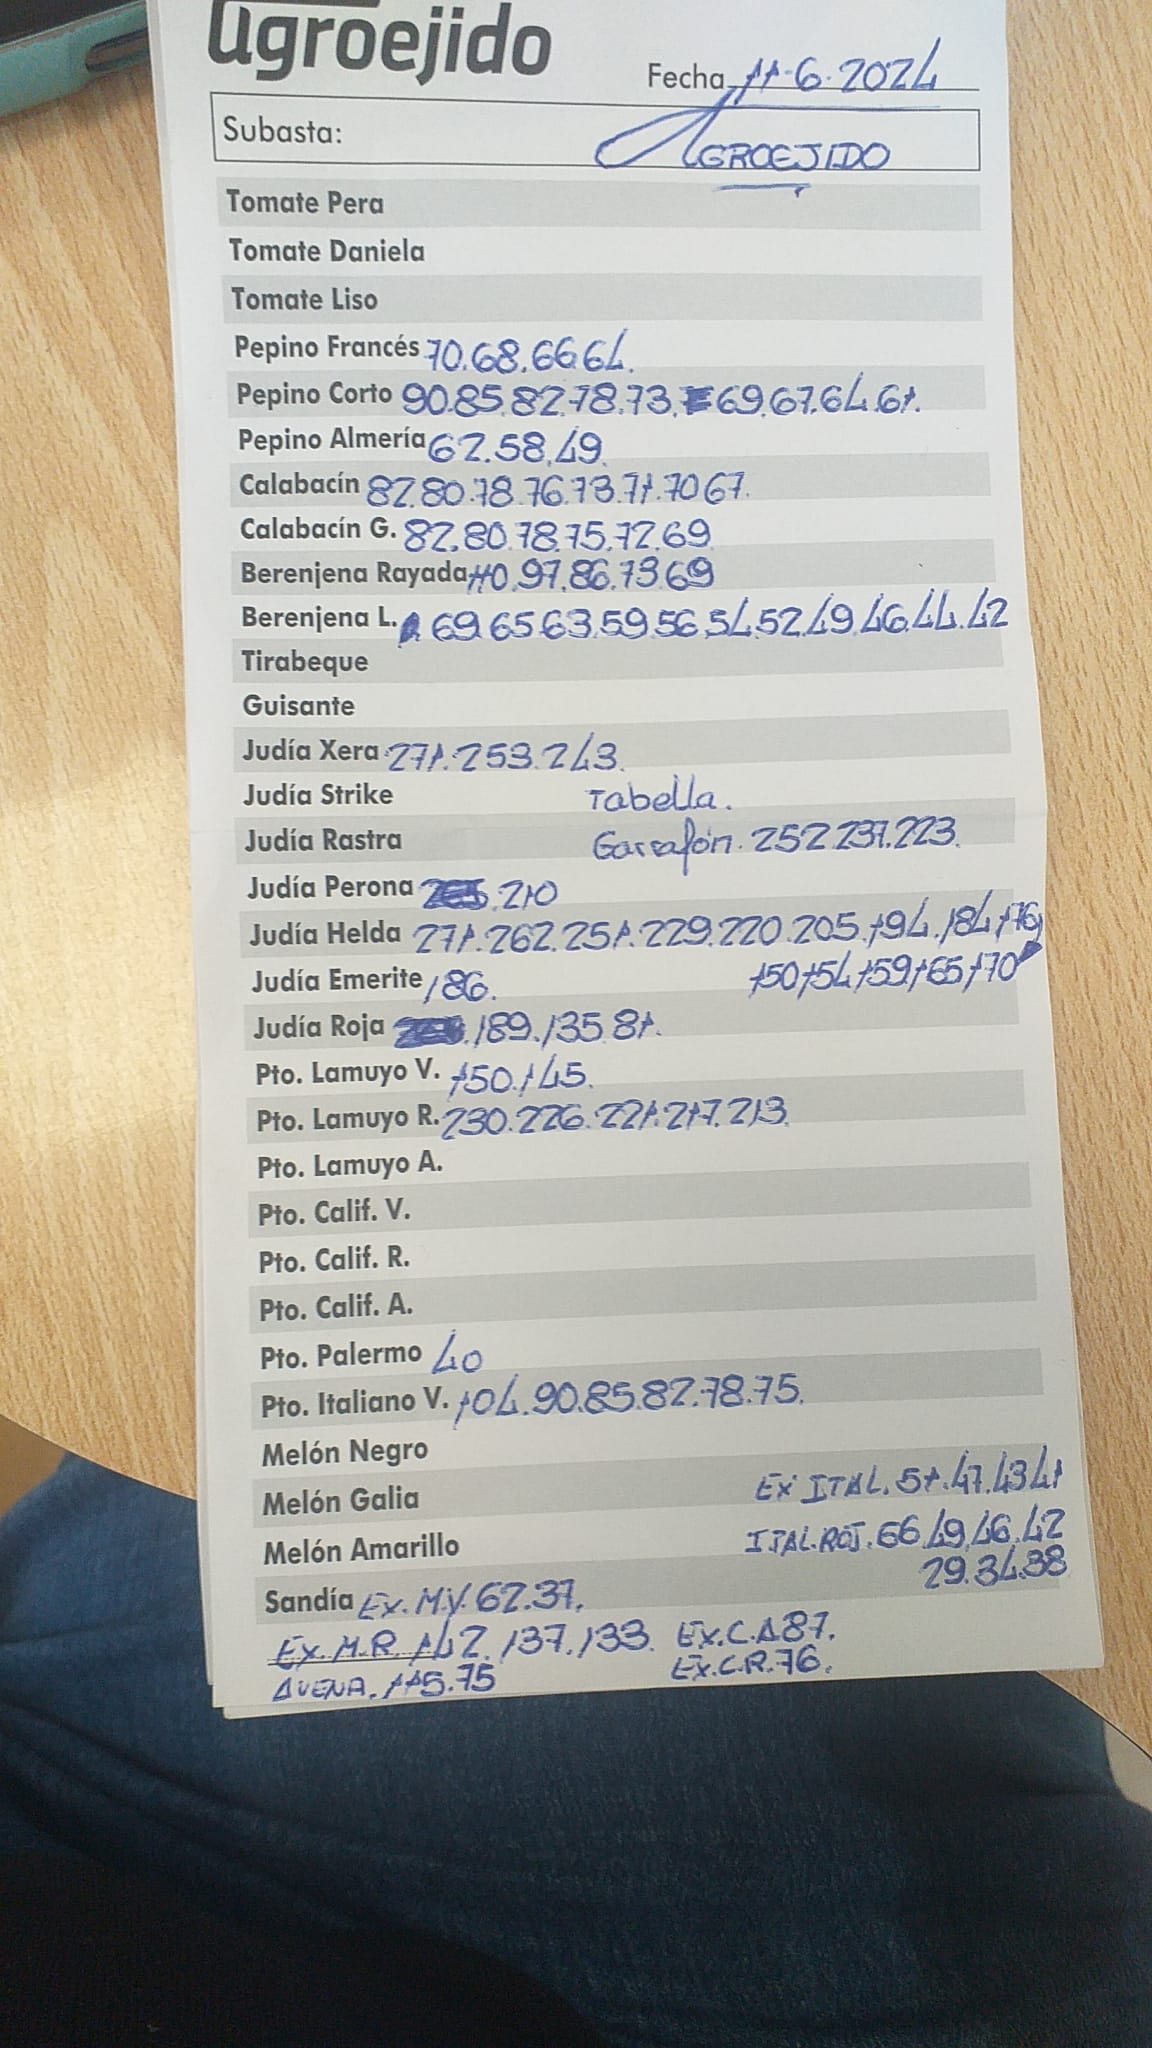 agroejido
Fecha 11-6-2024
Subasta: AGROEJIDO
Tomate Pera
Tomate Daniela
Tomate Liso
Pepino Francés 70.68.66.64.
Pepino Corto 90.85.82.78.73. 69.67.64.61.
Pepino Almería 62.58.49.
Calabacín 82.80.78.76.73.71.70 67.
Calabacín G. 82.80.78.75.72.69
Berenjena Rayada 110.97.86.73 69
Berenjena L. 69.65 63.59.56.54.52.49.46.44.42
Tirabeque
Guisante
Judía Xera 271.253.243.
Judía Strike Tabella.
Judía Rastra Garrafón. 252 237.223.
Judía Perona .210
Judía Helda 271.262.251.229.220.205.194.184.176
Judía Emerite 186. 150.154.159.165.170
Judía Roja .189.135.81.
Pto. Lamuyo V. 150.145.
Pto. Lamuyo R. 230.226.221.217.213.
Pto. Lamuyo A.
Pto. Calif. V.
Pto. Calif. R.
Pto. Calif. A.
Pto. Palermo 40
Pto. Italiano V. 104.90.85.82.78.75.
Melón Negro
Melón Galia EX ITAL. 51.47.43 41
Melón Amarillo ITAL.ROJ.66.49.46.42
29.34.38
Sandía EX.M.V.62.37.
EX.M.R. 142.137.133. EX.C.A 87.
AVENA. 115.75 EX.C.R.76.